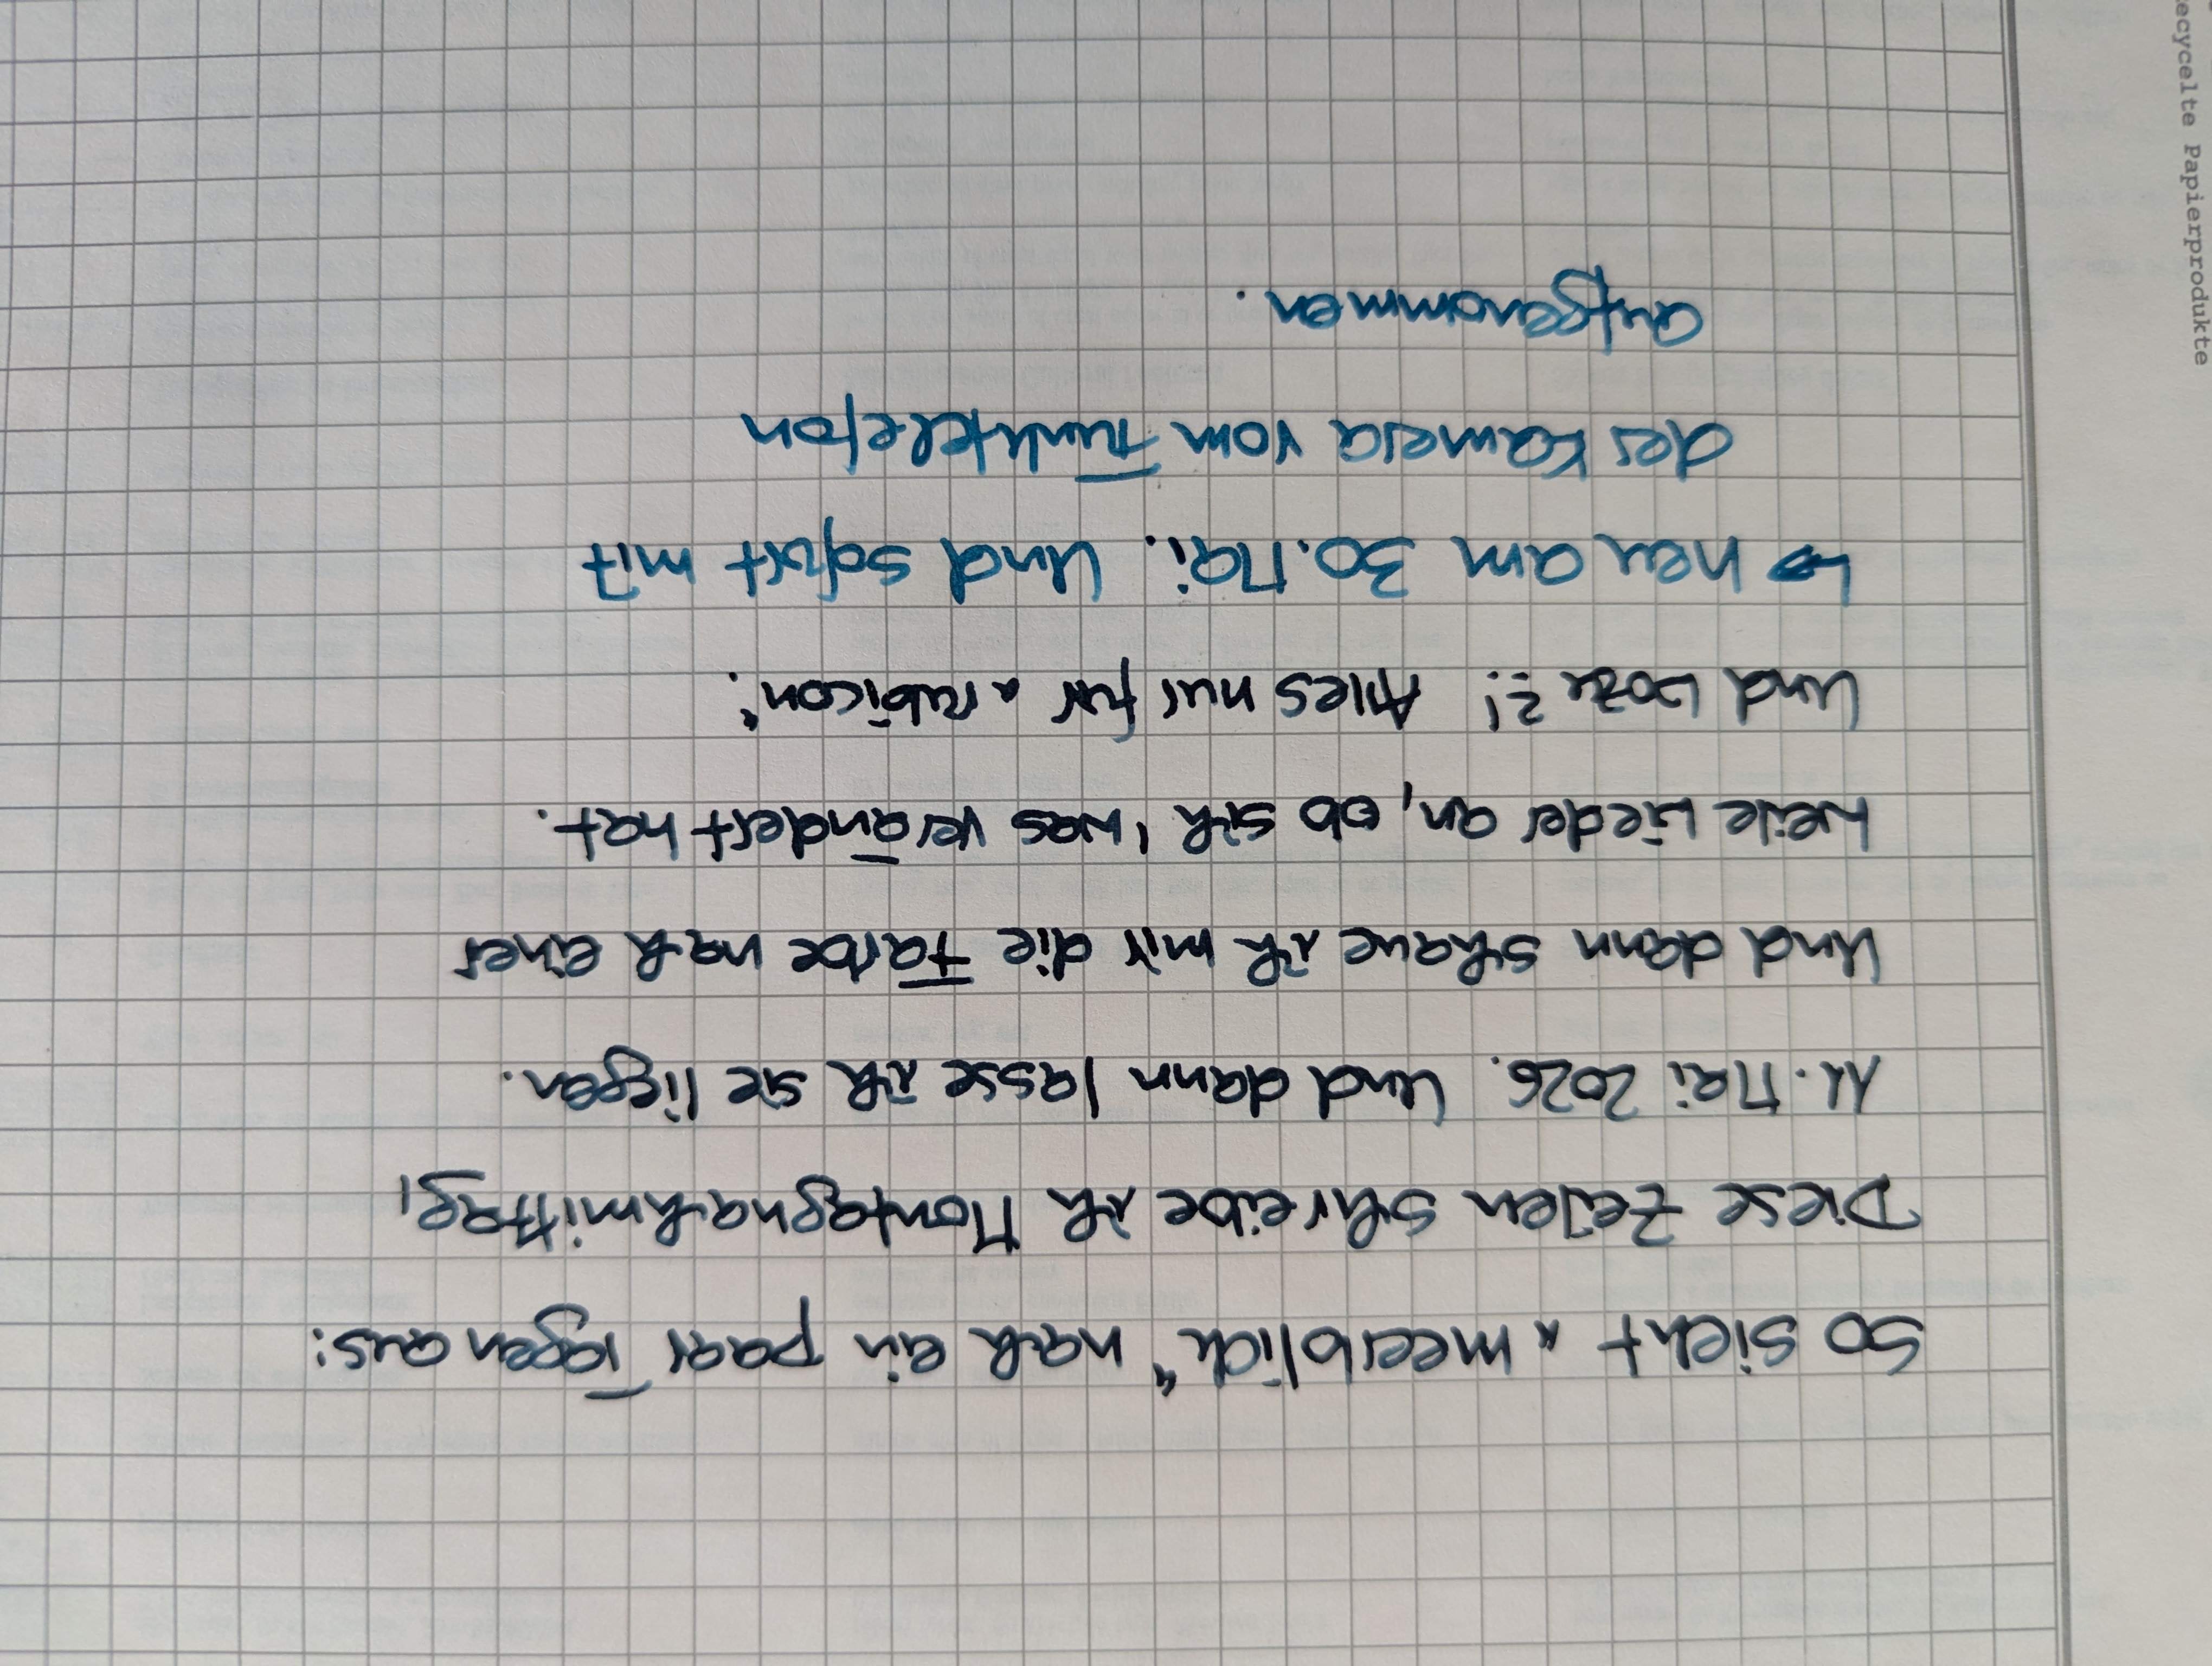 So sieht „meerblick“ nach ein paar Tagen aus:
Diese Zeilen schreibe ich Montagnachmittag,
11. Mai 2026. Und dann lasse ich sie liegen.
Und dann schaue ich mir die Farbe nach einer
Weile wieder an, ob sich 'was verändert hat.
Und wozu?! Alles nur für „rubicon“.
↳ neu am 30. Mai. Und sofort mit
der Kamera vom Funktelefon
aufgenommen.
ecycelte Papierprodukte